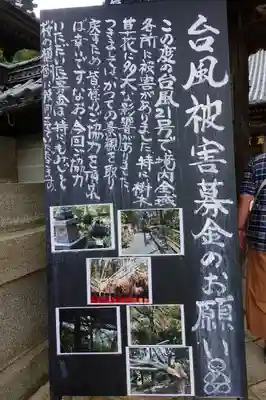 台風被害募金のお願い
この度の台風21号で境内全域
各所に被害がありました。特に樹木
草花に多大な影響がありました。
つきましては、かつての景観を取り
戻すため、皆様のご協力を頂れ
ば幸いです。なお、今回ご協力
いただいた募金は、特にもみじと
桜の植樹に